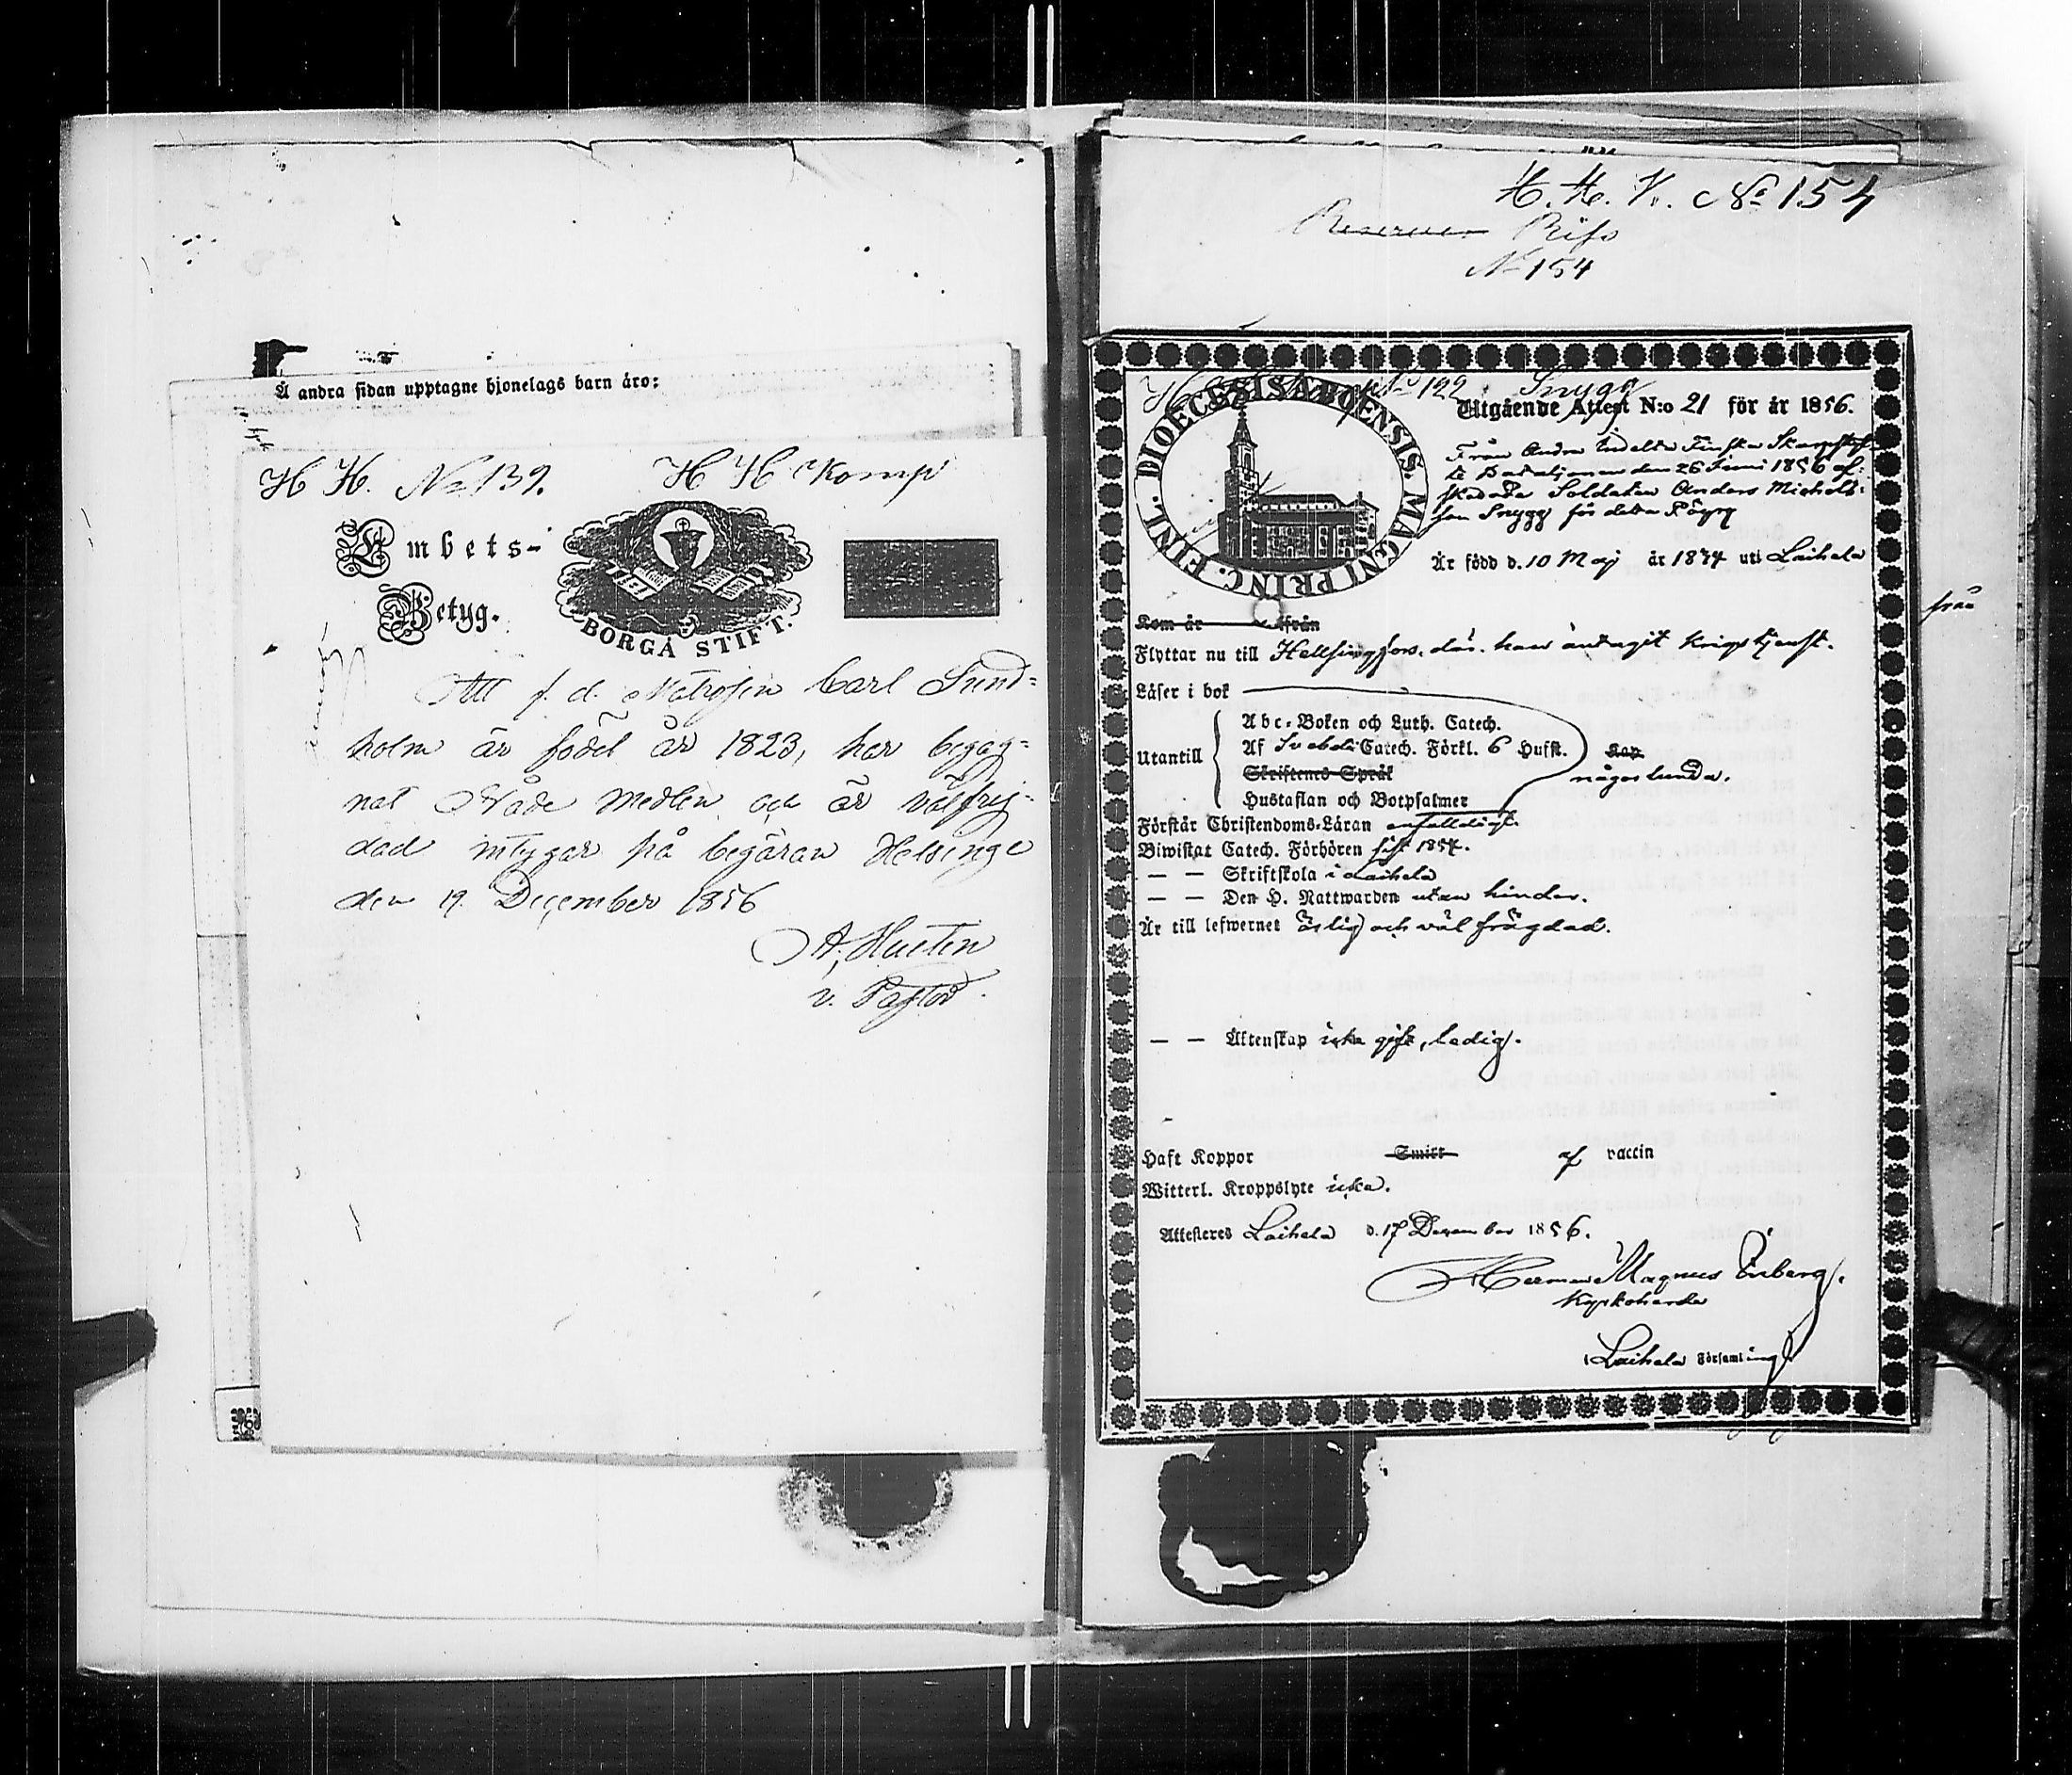 Å andra sidan upptagne hjonelags barn äro:
H H. No 139. H H Komp
Embets-
Betyg.
BORGÅ STIFT.
Att f. d. Matrosen Carl Sund-
holm är född år 1823, har begag-
nat Nåde medlen och är välfrej-
dad intygar på begäran Helsinge
den 19. December 1856
A. Hueten
v. Pastor.
H. H. K. No 154
Reserven Rifs
No 154
från
No 122 Snygg
DIOECESIS ABOENSIS. MAGNI PRINC. FINL.
Utgående Attest N:o 21 för år 1856.
Från Andra Indelta Finska
Bataljonen den 26 Juni 1856 af-
skedade Soldaten Anders Michels-
son Snygg för detta
Är född d. 10 Maj år 1834 uti Laihela
Kom år från
Flyttar nu till Hellsingfors, där han antagit krigstjenst.
Läser i bok
Abc-Boken och Luth. Catech.
Utantill
Af Svebeli Catech. Förkl. 6 Hufst. Kap
Skriftenes Språk
någorlunda.
Hustaflan och Botpsalmer
Förstår Christendoms-Läran enfaldigt.
Biwistat Catech. Förhören sist 1854.
— — Skriftskola i Laihela
— — Den H. Nattwarden utan hinder.
Är till lefwernet ärlig och väl frägdad.
— — Äktenskap icke gift, ledig.
Haft Koppor Smitt af vaccin
Witterl. Kroppslyte icke.
Attesteras Laihela d. 17 December 1856.
Herman Magnus Enberg.
Kyrkoherde
i Laihela Församling